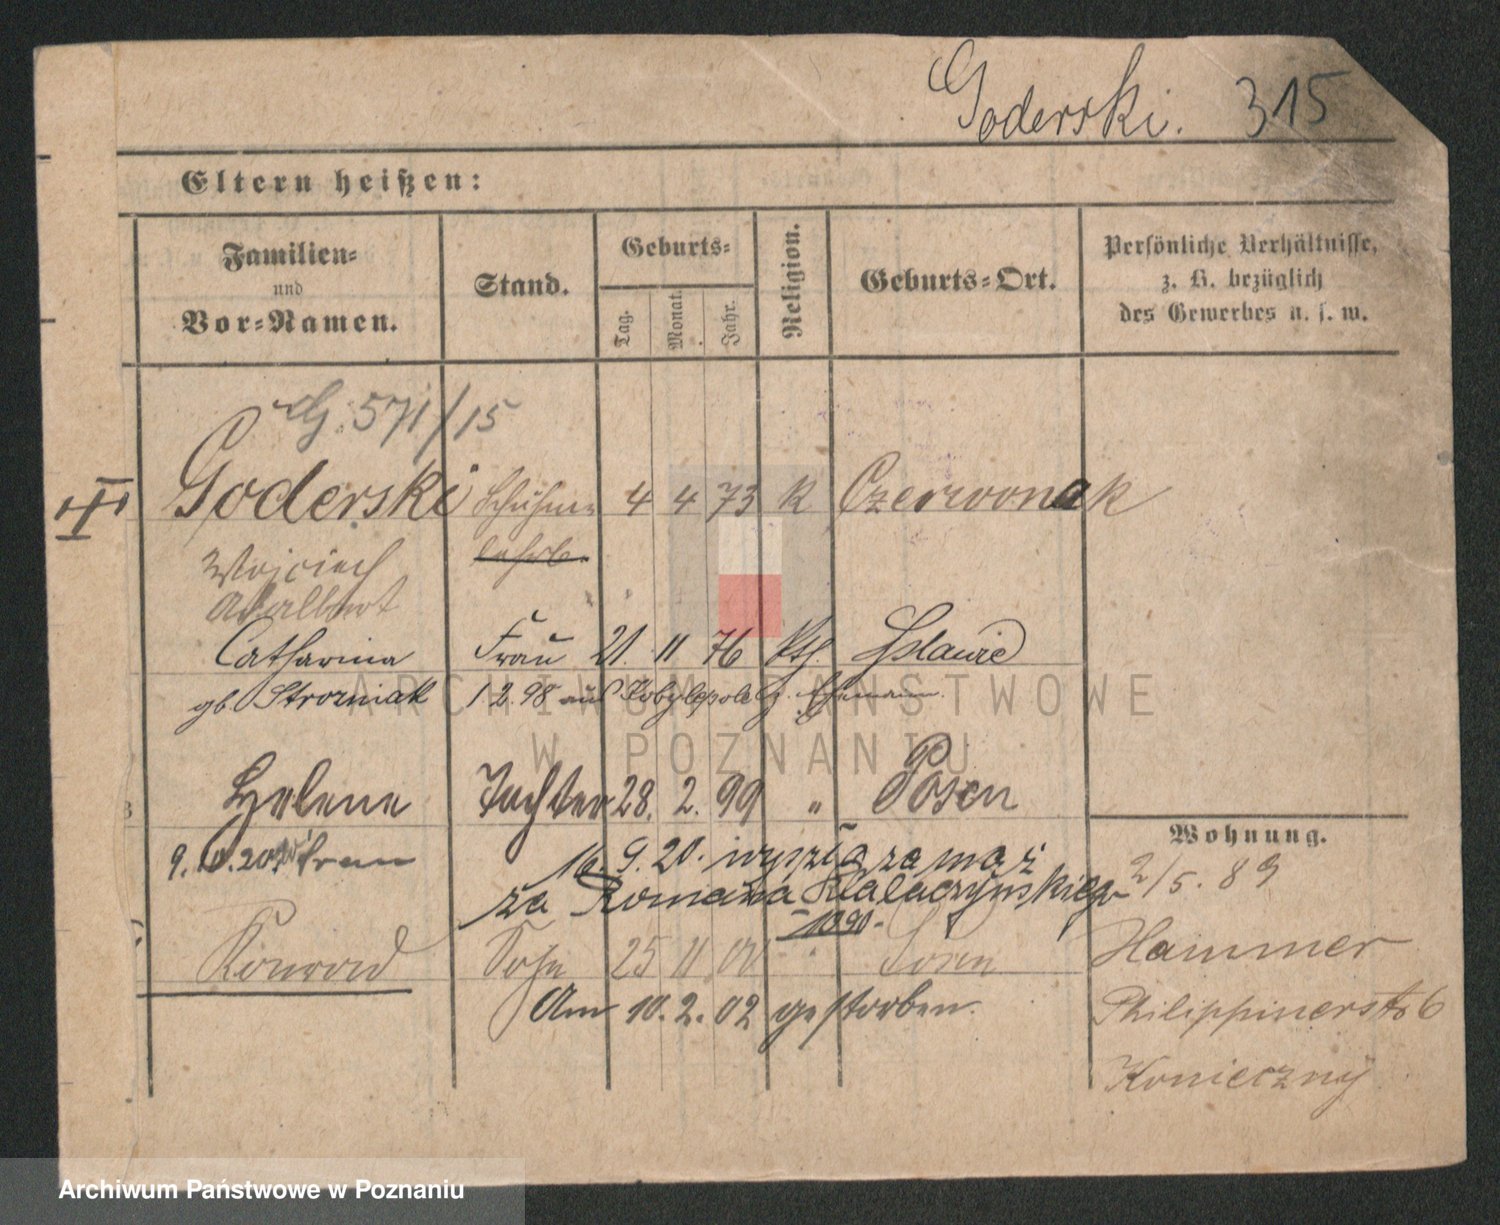 Goderski. 315
Eltern heißen:
Familien-
und
Vor-Namen.
Stand.
Geburts-
Tag.
Monat.
Jahr.
Religion.
Geburts-Ort.
Persönliche Verhältnisse,
z. B. bezüglich
des Gewerbes u. s. w.
G. 571/15
III
Goderski 4 4 73 k Czerwonak
Wojciech
Adalbert
Catharina Frau 21. 11 76 kth.
gb Strozniak 1 2.98 aus Kobylepole z. Ehemann.
Helene Tochter 28. 2. 99 " Posen
Wohnung.
16. 9. 20. wyszła za mąż
za Romana
1890.
2/5. 89
Konrad Sohn 25 11 00 " Posen
Hammer
Am 10. 2. 02 gestorben.
Philippinerstr 6
Konieczny
ARCHIWUM PAŃSTWOWE
W POZNANIU
Archiwum Państwowe w Poznaniu